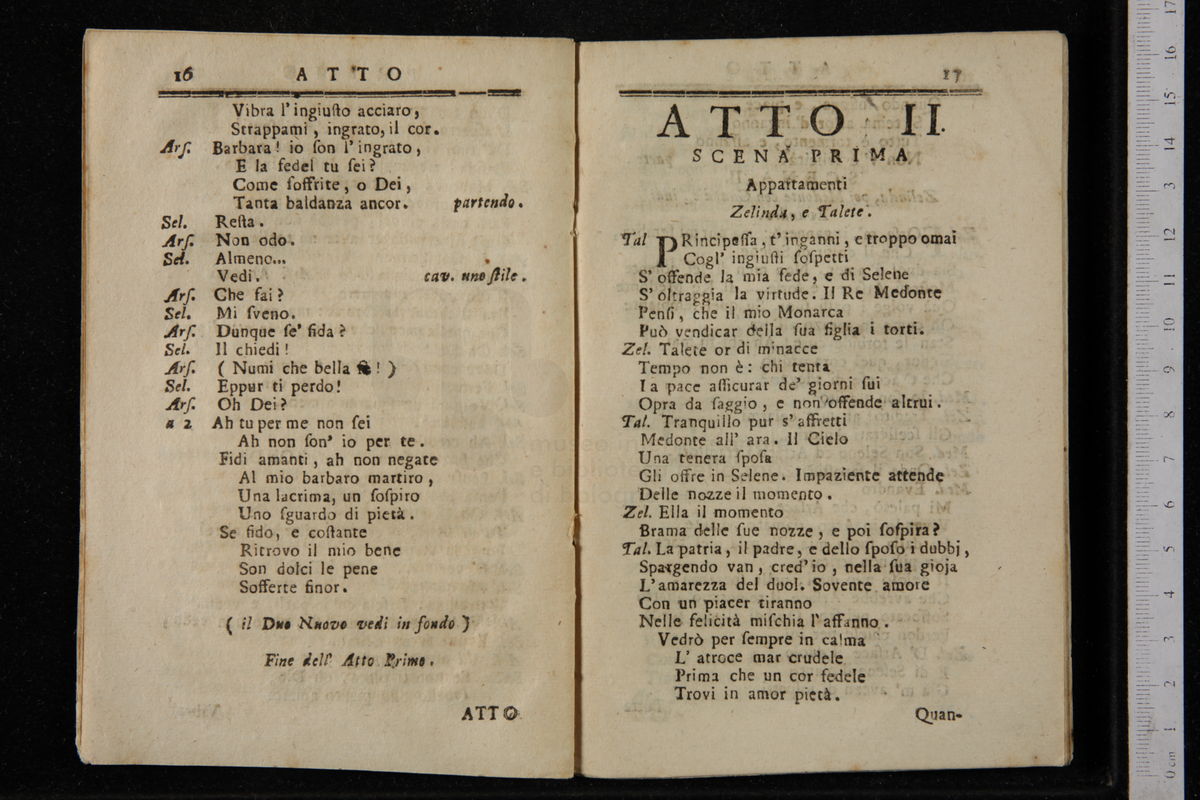 16 ATTO
Vibra l' ingiuſto acciaro,
Strappami, ingrato, il cor.
Arſ. Barbara! io ſon l' ingrato,
E la fedel tu ſei?
Come ſoffrite, o Dei,
Tanta baldanza ancor. partendo.
Sel. Reſta.
Arſ. Non odo.
Sel. Almeno...
Vedi. cav. uno ſtile.
Arſ. Che fai?
Sel. Mi ſveno.
Arſ. Dunque ſe' fida?
Sel. Il chiedi!
Arſ. ( Numi che bella ! )
Sel. Eppur ti perdo!
Arſ. Oh Dei?
a 2 Ah tu per me non ſei
Ah non ſon' io per te.
Fidi amanti, ah non negate
Al mio barbaro martiro,
Una lacrima, un ſoſpiro
Uno ſguardo di pietà.
Se fido, e coſtante
Ritrovo il mio bene
Son dolci le pene
Sofferte finor.
( il Duo Nuovo vedi in fondo )
Fine dell' Atto Primo.
ATTO
17
ATTO II.
SCENA PRIMA
Appartamenti
Zelinda, e Talete.
Tal PRincipeſſa, t' inganni, e troppo omai
Cogl' ingiuſti ſoſpetti
S' offende la mia fede, e di Selene
S' oltraggia la virtude. Il Re Medonte
Penſi, che il mio Monarca
Può vendicar della ſua figlia i torti.
Zel. Talete or di minacce
Tempo non è: chi tenta
La pace aſſicurar de' giorni ſui
Opra da ſaggio, e non offende altrui.
Tal. Tranquillo pur s' affretti
Medonte all' ara. Il Cielo
Una tenera ſpoſa
Gli offre in Selene. Impaziente attende
Delle nozze il momento.
Zel. Ella il momento
Brama delle ſue nozze, e poi ſoſpira?
Tal. La patria, il padre, e dello ſpoſo i dubbj,
Spargendo van, cred' io, nella ſua gioja
L' amarezza del duol. Sovente amore
Con un piacer tiranno
Nelle felicità miſchia l' affanno.
Vedrò per ſempre in calma
L' atroce mar crudele
Prima che un cor fedele
Trovi in amor pietà.
Quan-